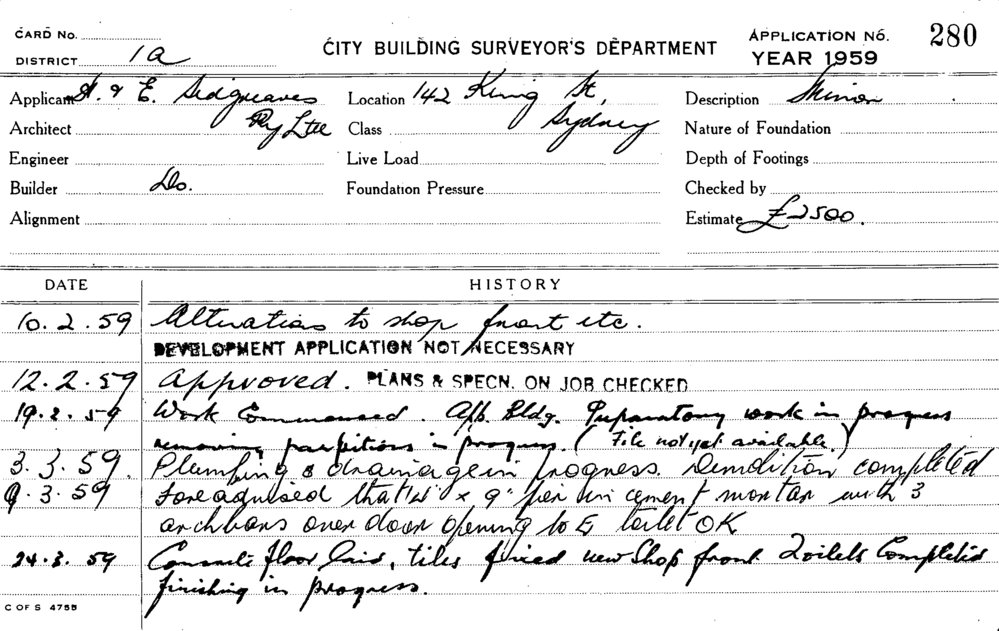 CARD No.
DISTRICT 1a
CITY BUILDING SURVEYOR'S DEPARTMENT
APPLICATION No. 280
YEAR 1959
Applicant & E. Sedgreaves
Pty Ltd
Architect
Engineer
Builder Do.
Alignment
Location 142 King St,
Sydney
Class
Live Load
Foundation Pressure
Description Minor
Nature of Foundation
Depth of Footings
Checked by
Estimate £2500.
DATE HISTORY
10.2.59 Alterations to shop front etc.
DEVELOPMENT APPLICATION NOT NECESSARY
12.2.59 Approved. PLANS & SPECN. ON JOB CHECKED
19.2.59 Work Commenced. Bldg. Preparatory work in progress
removing partitions in progress. (File not yet available)
3.3.59. Plumbing & drainage in progress. Demolition completed
9.3.59 advised that x 9" pier in cement mortar with 3
arch bars over door opening to toilet OK
24.3.59 Concrete floor laid, tiles fixed new Shop front Toilets Completed
finishing in progress.
C OF S 4755